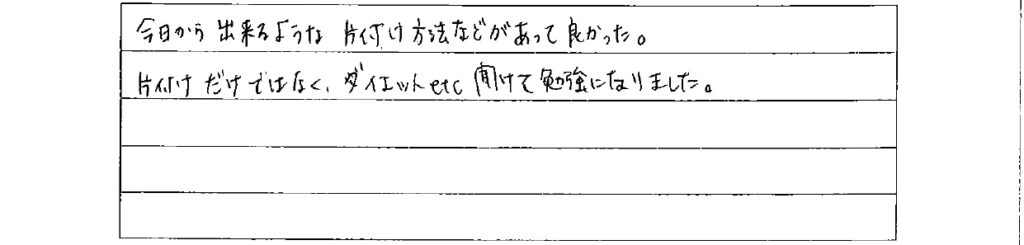 今日から出来るような片付け方法などがあって良かった。
片付けだけではなく、ダイエットetc聞けて勉強になりました。